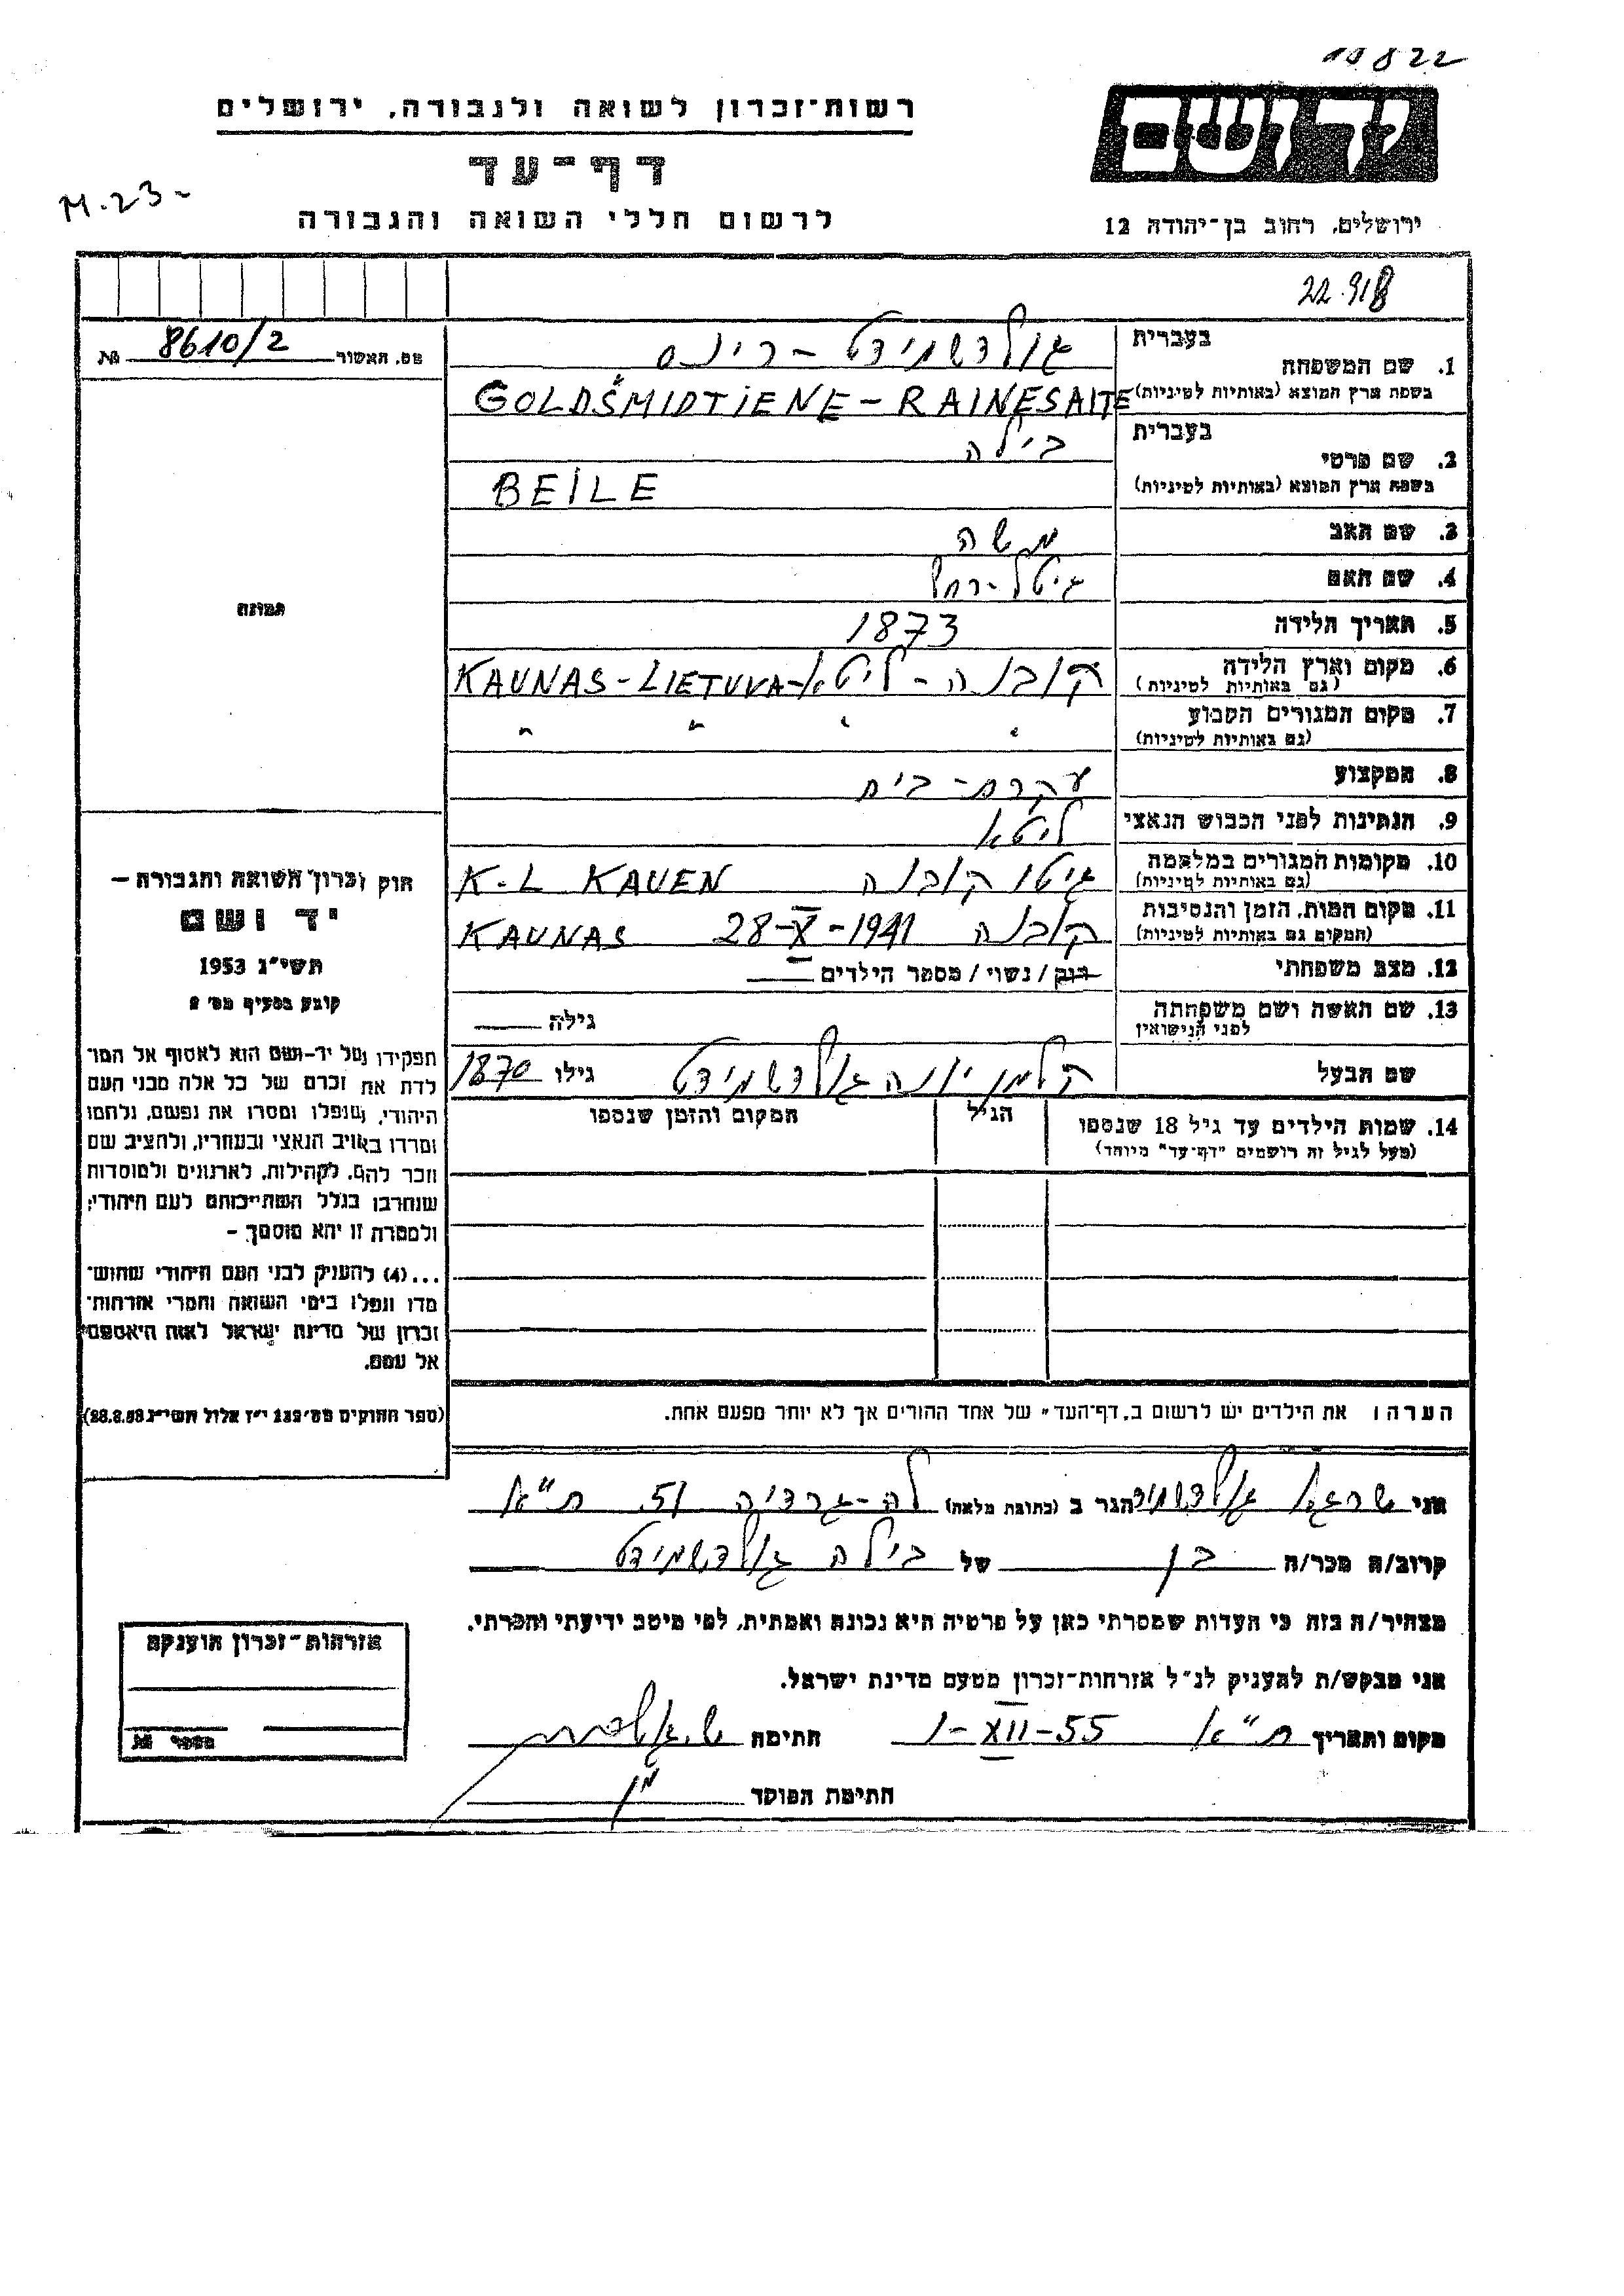 10822
רשות־זכרון לשואה ולגבורה, ירושלים
יד ושם
דף־עד
M.23-
לרשום חללי השואה והגבורה
ירושלים, רחוב בן־יהודה 12
22.918
מס. האשור 8610/2 №
תמונה
בעברית גולדשמידט - רינס
1. שם המשפחה
בשפת ארץ המוצא (באותיות לטיניות) GOLDŠMIDTIENE - RAINESAITE
בעברית בילה
2. שם פרטי
בשפת ארץ המוצא (באותיות לטיניות) BEILE
3. שם האב משה
4. שם האם גיטל-רחל
5. תאריך הלידה 1873
6. מקום וארץ הלידה קובנה - ליטא KAUNAS-LIETUVA
(גם באותיות לטיניות)
7. מקום המגורים הקבוע " " " "
(גם באותיות לטיניות)
8. המקצוע עקרת-בית
9. הנתינות לפני הכבוש הנאצי ליטא
10. מקומות המגורים במלחמה גיטו קובנה K.L KAUEN
(גם באותיות לטיניות)
11. מקום המות, הזמן והנסיבות קובנה 28-X-1941 KAUNAS
(המקום גם באותיות לטיניות)
12. מצב משפחתי רווק / נשוי / מספר הילדים
13. שם האשה ושם משפחתה
לפני הנישואין גילה
שם הבעל קלמן יונה גולדשמידט גילו 1870
14. שמות הילדים עד גיל 18 שנספו הגיל המקום והזמן שנספו
(מעל לגיל זה רושמים "דף־עד" מיוחד)
הערה: את הילדים יש לרשום ב„דף־העד" של אחד ההורים אך לא יותר מפעם אחת.
חוק זכרון השואה והגבורה —
יד ושם
תשי"ג 1953
קובע בסעיף מס' 2
תפקידו של יד־ושם הוא לאסוף אל המו־
לדת את זכרם של כל אלה מבני העם
היהודי, שנפלו ומסרו את נפשם, נלחמו
ומרדו באויב הנאצי ובעוזריו, ולהציב שם
וזכר להם, לקהילות, לארגונים ולמוסדות
שנחרבו בגלל השתייכותם לעם היהודי;
ולמטרה זו יהא מוסמך —
...(4) להעניק לבני העם היהודי שהוש־
מדו ונפלו בימי השואה והמרי אזרחות־
זכרון של מדינת ישראל לאות היאספם
אל עמם.
(ספר החוקים מס' 132 י"ז אלול תשי"ג 28.8.53)
אני שרגא גולדשמידט הגר ב (כתובת מלאה) לה-גרדיה 51 ת"א
קרוב/ה מכר/ה בן של בילה גולדשמידט
מצהיר/ה בזה כי העדות שמסרתי כאן על פרטיה היא נכונה ואמתית, לפי מיטב ידיעתי והכרתי.
אני מבקש/ת להעניק לנ"ל אזרחות־זכרון מטעם מדינת ישראל.
מקום ותאריך ת"א 1-XII-55 חתימה
חתימת הפוקד
אזרחות־זכרון הוענקה
מספר №